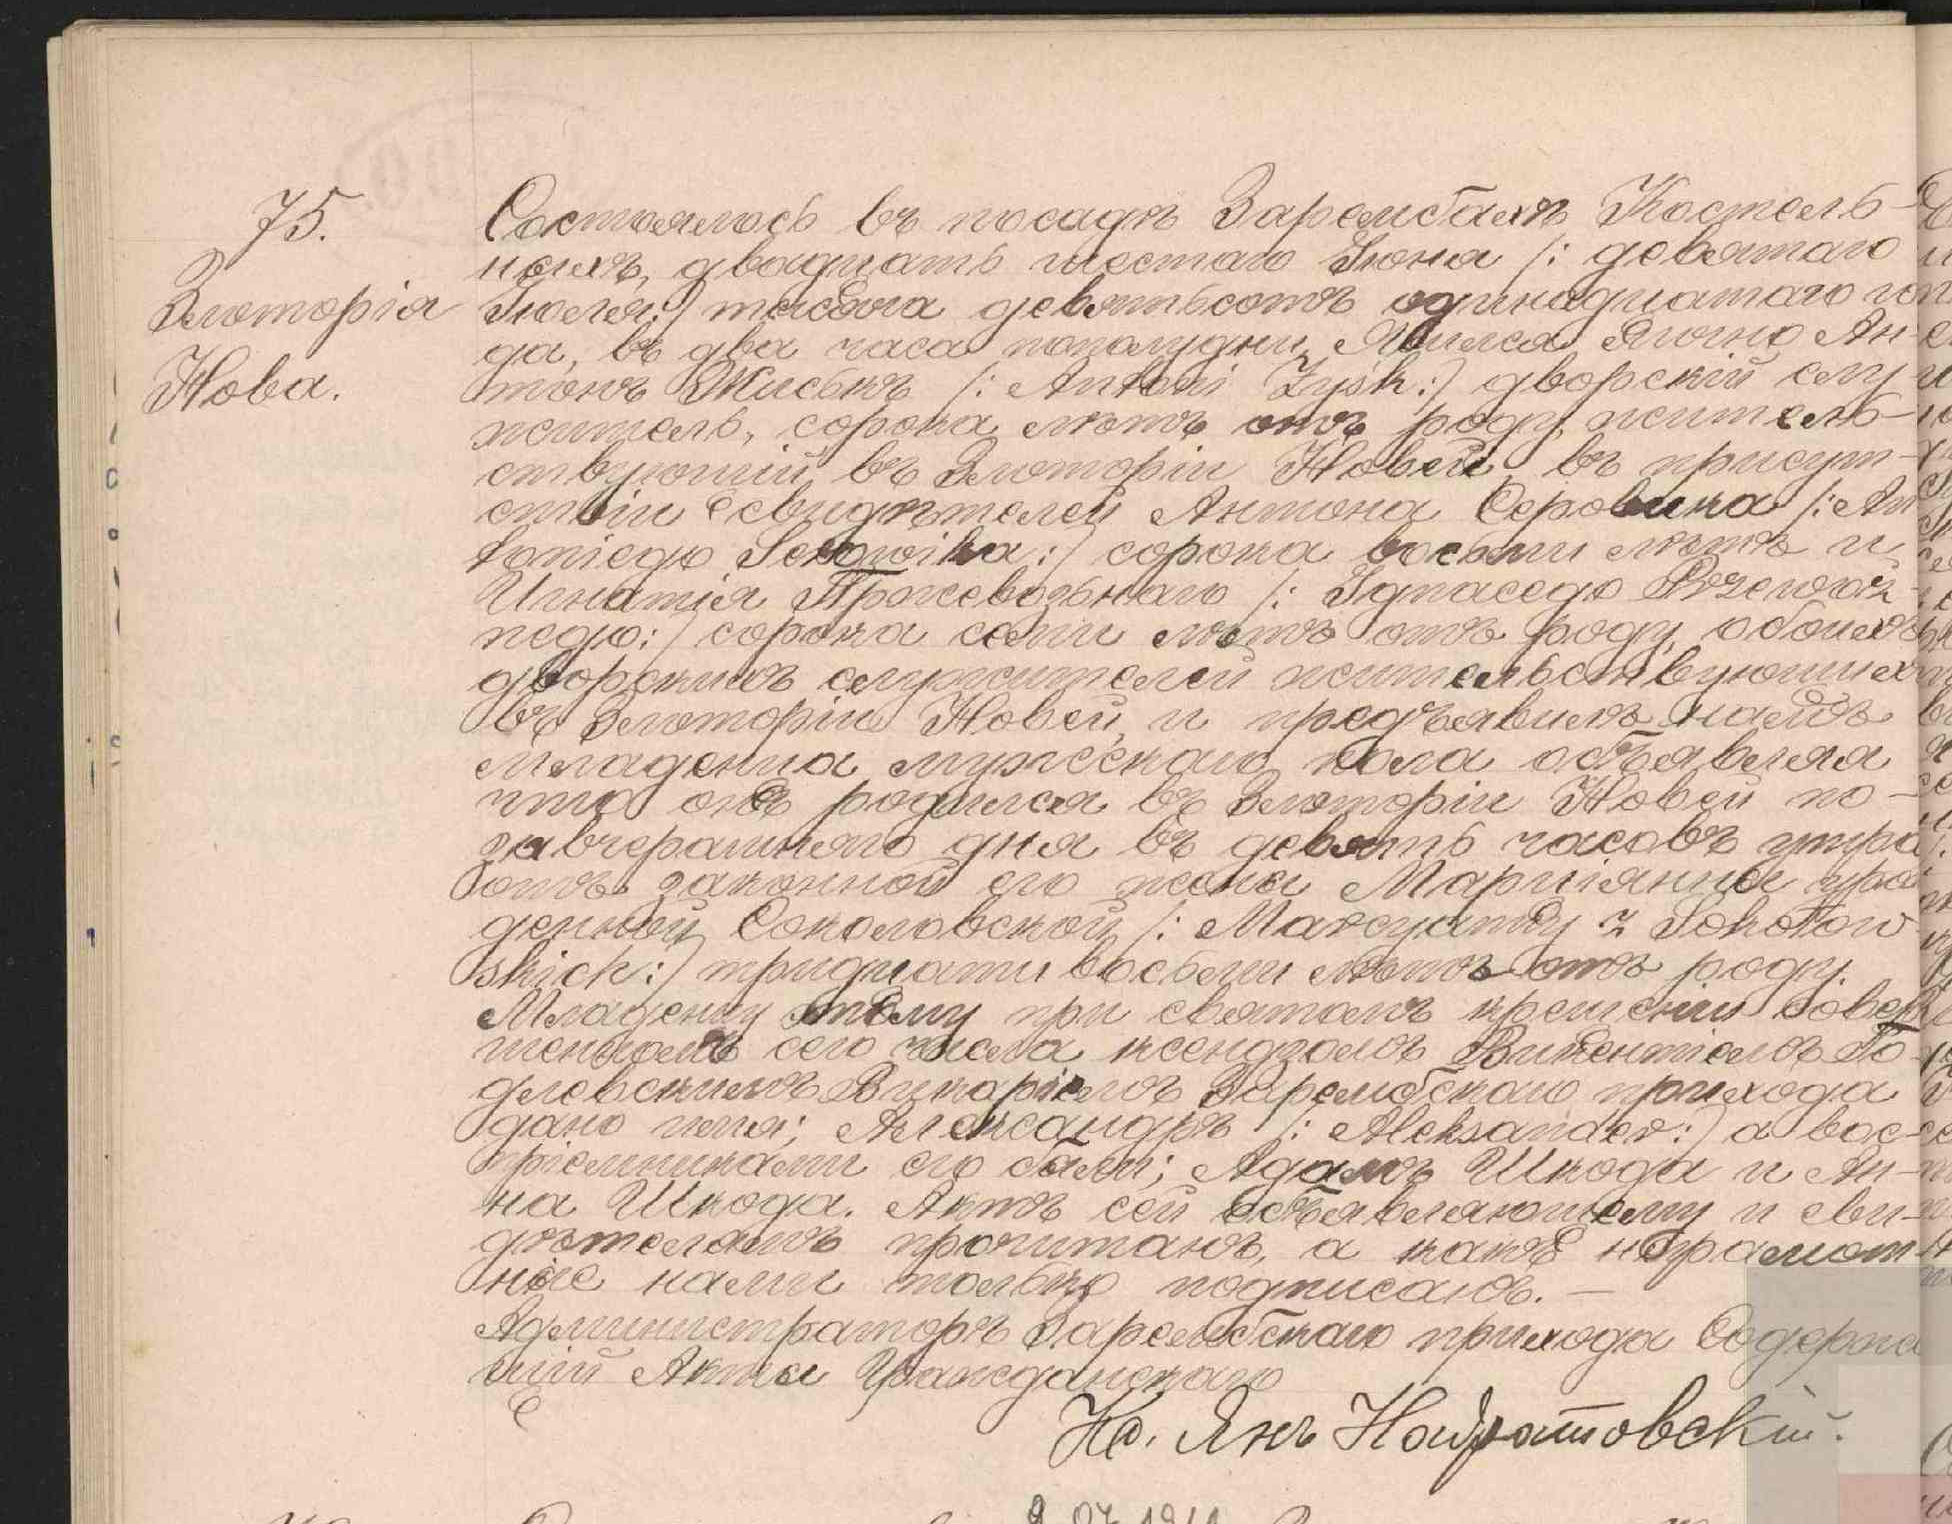 75.
Злоторія
Нова.
Состоялось въ посадѣ Зарембахъ Костель-
ныхъ, двадцать шестаго Іюня /: девятаго
Іюля:/ тысяча девятьсотъ одинадцатаго го-
да, въ два часа пополудни. Явился лично Ан-
тонъ Жиськъ /: Antoni Zyśk:/ дворскій слу-
житель, сорока лѣтъ отъ роду, житель-
ствующій въ Злоторіи Новой въ присут-
ствіи свидѣтелей Антона Серовика /: An-
toniego Serowika:/ сорока восьми лѣтъ и
Игнатія Пржевозьнаго /: Ignacego Przewoź-
nego:/ сорока семи лѣтъ отъ роду, обоихъ
дворскихъ служителей жительствующихъ
въ Злоторіи Новой, и предъявилъ намъ
младенца мужескаго пола объявляя
что онъ родился въ Злоторіи Новой по-
завчерашняго дня въ девять часовъ утра
отъ законной его жены Маріянны урож-
денной Соколовской /: Maryanny z Sokołow-
skich:/ тридцати восьми лѣтъ отъ роду.
Младенцу этому при святомъ крещеніи совер-
шенномъ сего числа ксендзомъ Викентіемъ Го-
длевскимъ Викаріемъ Зарембскаго прихода
дано имя; Александръ /: Aleksander:/ а вос-
пріемниками его были; Адамъ Шкода и Ан-
на Шкода. Актъ сей объявляющему и сви-
дѣтелямъ прочитанъ, а какъ неграмот-
ные нами только подписанъ. —
Администраторъ Зарембскаго прихода Содержа
щій Акты Гражданскаго
Кс. Янъ
9.07.1911